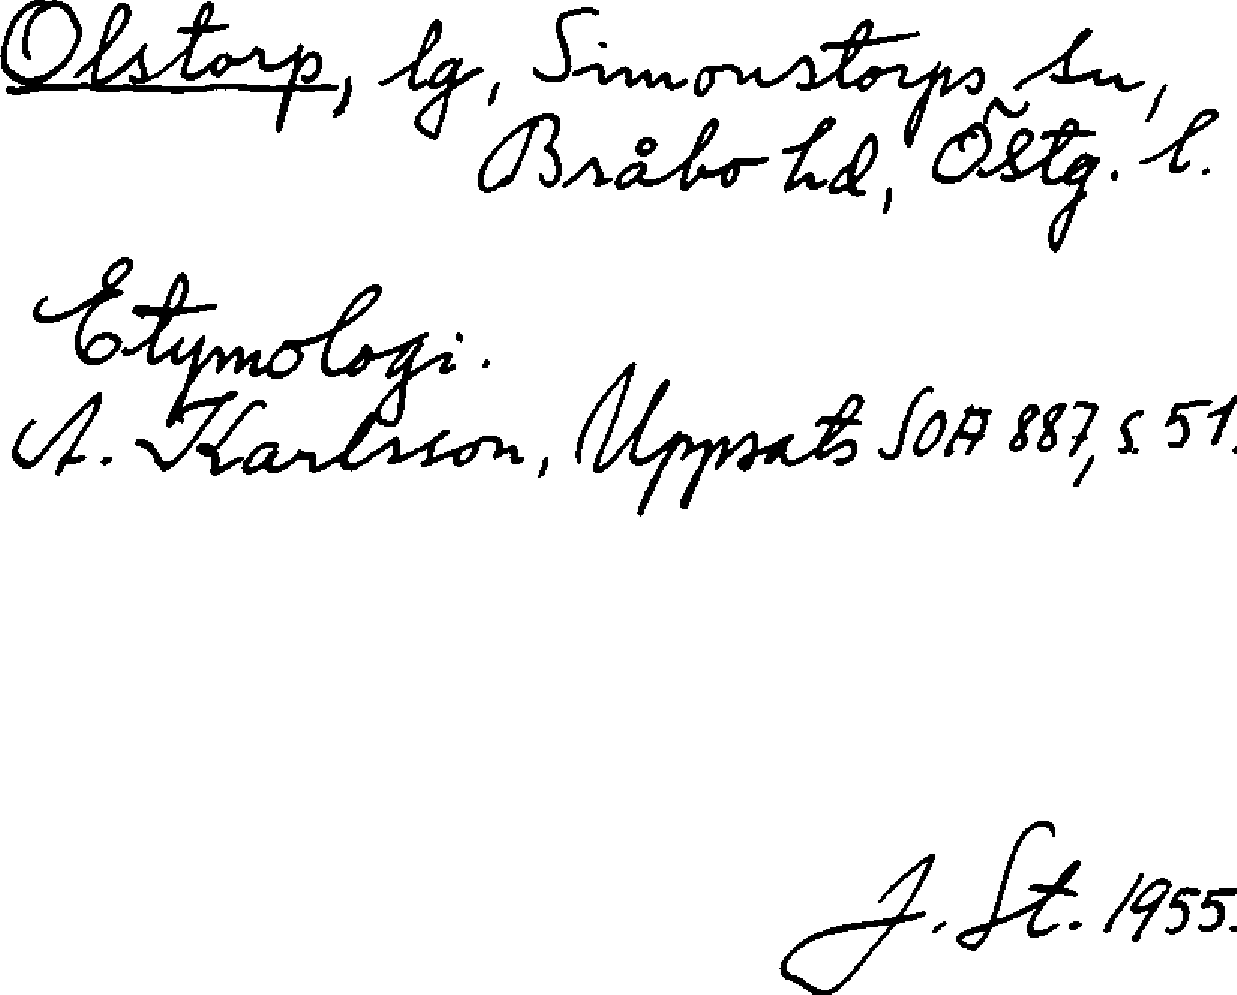 Olstorp, lg, Simonstorps sn,
Bråbo hd, Östg. l.
Etymologi.
A. Karlsson, Uppsats SOA 887, s. 51.
J. St. 1955.